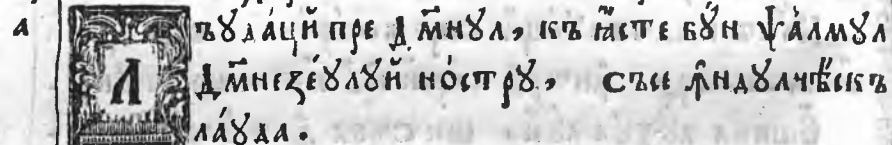 а Лъꙋда́цй пре Дм҃нꙋл, къ ꙗ҆́сте бꙋ́н ѱа́лмꙋл
Дм҃незе́ꙋлꙋй но́стрꙋ, съсе ꙟ҆ндꙋлчѣ́скъ
ла́ꙋда.